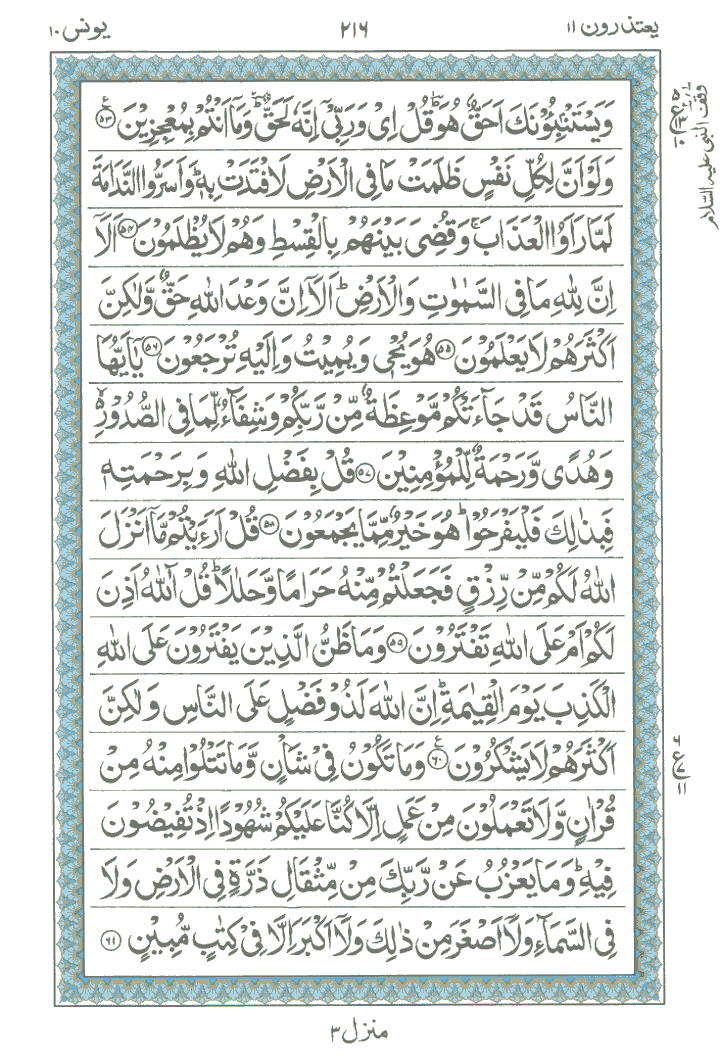 یعتذرون ۱۱
۲۱۶
یونس ۱۰
وَيَسْتَنْۢبِـُٔوْنَكَ اَحَقٌّ هُوَ ؔؕ قُلْ اِیْ وَرَبِّیْۤ اِنَّهٗ لَحَقٌّ ؔؕ وَمَاۤ اَنْتُمْ بِمُعْجِزِیْنَ ﴿۵۳﴾
وَلَوْ اَنَّ لِكُلِّ نَفْسٍ ظَلَمَتْ مَا فِی الْاَرْضِ لَافْتَدَتْ بِهٖ ؕ وَاَسَرُّوا النَّدَامَةَ
لَمَّا رَاَوُا الْعَذَابَ ۚ وَقُضِیَ بَیْنَهُمْ بِالْقِسْطِ وَهُمْ لَا یُظْلَمُوْنَ ﴿۵۴﴾ اَلَاۤ
اِنَّ لِلّٰهِ مَا فِی السَّمٰوٰتِ وَالْاَرْضِ ؕ اَلَاۤ اِنَّ وَعْدَ اللّٰهِ حَقٌّ وَّلٰكِنَّ
اَكْثَرَهُمْ لَا یَعْلَمُوْنَ ﴿۵۵﴾ هُوَ یُحْیٖ وَیُمِیْتُ وَاِلَیْهِ تُرْجَعُوْنَ ﴿۵۶﴾ یٰۤاَیُّهَا
النَّاسُ قَدْ جَآءَتْكُمْ مَّوْعِظَةٌ مِّنْ رَّبِّكُمْ وَشِفَآءٌ لِّمَا فِی الصُّدُوْرِ ۙ۬
وَهُدًی وَّرَحْمَةٌ لِّلْمُؤْمِنِیْنَ ﴿۵۷﴾ قُلْ بِفَضْلِ اللّٰهِ وَبِرَحْمَتِهٖ
فَبِذٰلِكَ فَلْیَفْرَحُوْا ؕ هُوَ خَیْرٌ مِّمَّا یَجْمَعُوْنَ ﴿۵۸﴾ قُلْ اَرَءَیْتُمْ مَّاۤ اَنْزَلَ
اللّٰهُ لَكُمْ مِّنْ رِّزْقٍ فَجَعَلْتُمْ مِّنْهُ حَرَامًا وَّحَلٰلًا ؕ قُلْ آٰللّٰهُ اَذِنَ
لَكُمْ اَمْ عَلَی اللّٰهِ تَفْتَرُوْنَ ﴿۵۹﴾ وَمَا ظَنُّ الَّذِیْنَ یَفْتَرُوْنَ عَلَی اللّٰهِ
الْكَذِبَ یَوْمَ الْقِیٰمَةِ ؕ اِنَّ اللّٰهَ لَذُوْ فَضْلٍ عَلَی النَّاسِ وَلٰكِنَّ
اَكْثَرَهُمْ لَا یَشْكُرُوْنَ ﴿۶۰﴾ع وَمَا تَكُوْنُ فِیْ شَاْنٍ وَّمَا تَتْلُوْا مِنْهُ مِنْ
قُرْاٰنٍ وَّلَا تَعْمَلُوْنَ مِنْ عَمَلٍ اِلَّا كُنَّا عَلَیْكُمْ شُهُوْدًا اِذْ تُفِیْضُوْنَ
فِیْهِ ؕ وَمَا یَعْزُبُ عَنْ رَّبِّكَ مِنْ مِّثْقَالِ ذَرَّةٍ فِی الْاَرْضِ وَلَا
فِی السَّمَآءِ وَلَاۤ اَصْغَرَ مِنْ ذٰلِكَ وَلَاۤ اَكْبَرَ اِلَّا فِیْ كِتٰبٍ مُّبِیْنٍ ﴿۶۱﴾
وقف النبی علیہ السلام
ع
۱۱
منزل ۳